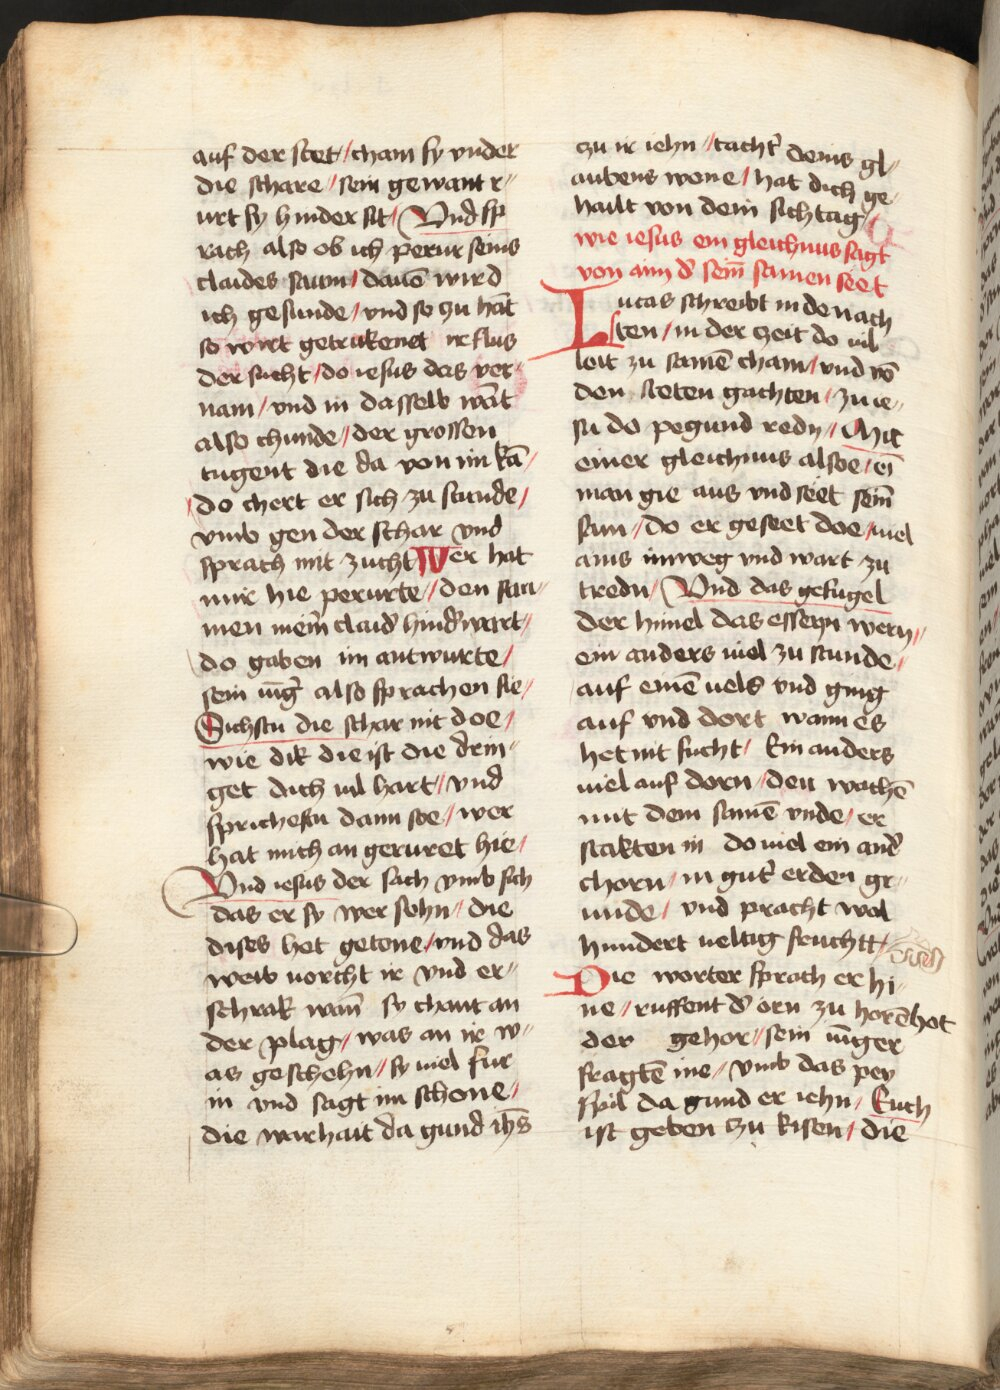 auf der stet / cham sy vnder
die schare / sein gewant r〃
urt sy hinder sit / Vnd sp
rach also ob ich perur seins
claides saum / dauō wird
ich gesunde / vnd so zu hāt
so wirt getrukenet ir flus
der sucht / do iesus das ver〃
nam / vnd in dasselb wāt
also chunde / der grossen
tugent die da von im kā /
do chert er sich zu stunde /
vmb gen der schar vnd
sprach mit zucht Wer hat
mir hie perurte / den sau〃
men mein̄ claid hindwert /
do gaben im antwurte /
sein iūg̃ also sprachen sie /
Sichstu die schar nit doe /
wie dik die ist die drin〃
get dich uil hart / vnd
sprichestu dann soe / wer
hat mich an geruret hie /
Vnd iesus der sach vmb sich
das er sy wer sehn / die
dises het getone / vnd das
weib uorcht ir vnd er〃
schrak wan̄ sy chant an
der plag / was an ir w〃
as geschehn / sy uiel fur
in vnd sagt im schone /
die warhait da gund ih̄s
zu ir iehn / tacht̃ deins gl〃
aubens wone / hat dich ge〃
hailt von dem sichtag /
wie iesus ein gleichnus sagt
von aim d̃ sein̄ samen seet
Lucas schreibt in de nach
sten / in der zeit do uil
leit zu samē cham / vnd vō
den steten gachten / zu ie〃
su do pegund redn / Mit
einer gleichnus alsoe / eī
man gie aus vnd seet sein̄
sam / do er geseet doe / uiel
ains imweg vnd wart zu
tredn / Vnd das gefugel
der himel das essen wern /
ein anders uiel zu stunde /
auf einē uels vnd ging
auf vnd dort wann es
het nit fucht / Ein anders
uiel auf dorn / den wachē
mit dem samē vnde / er
stakten in do uiel ein and̃
chorn / in gut̃ erden gr〃
unde / vnd pracht wol
hundert ueltig feuchtt /
Die worter sprach er hi〃
ne / ruffent d̃ orn zu horē hot
der gehor / sein iūger
fragtē ine / vmb das pey
spil da gund er iehn / Euch
ist geben zu kisen / die